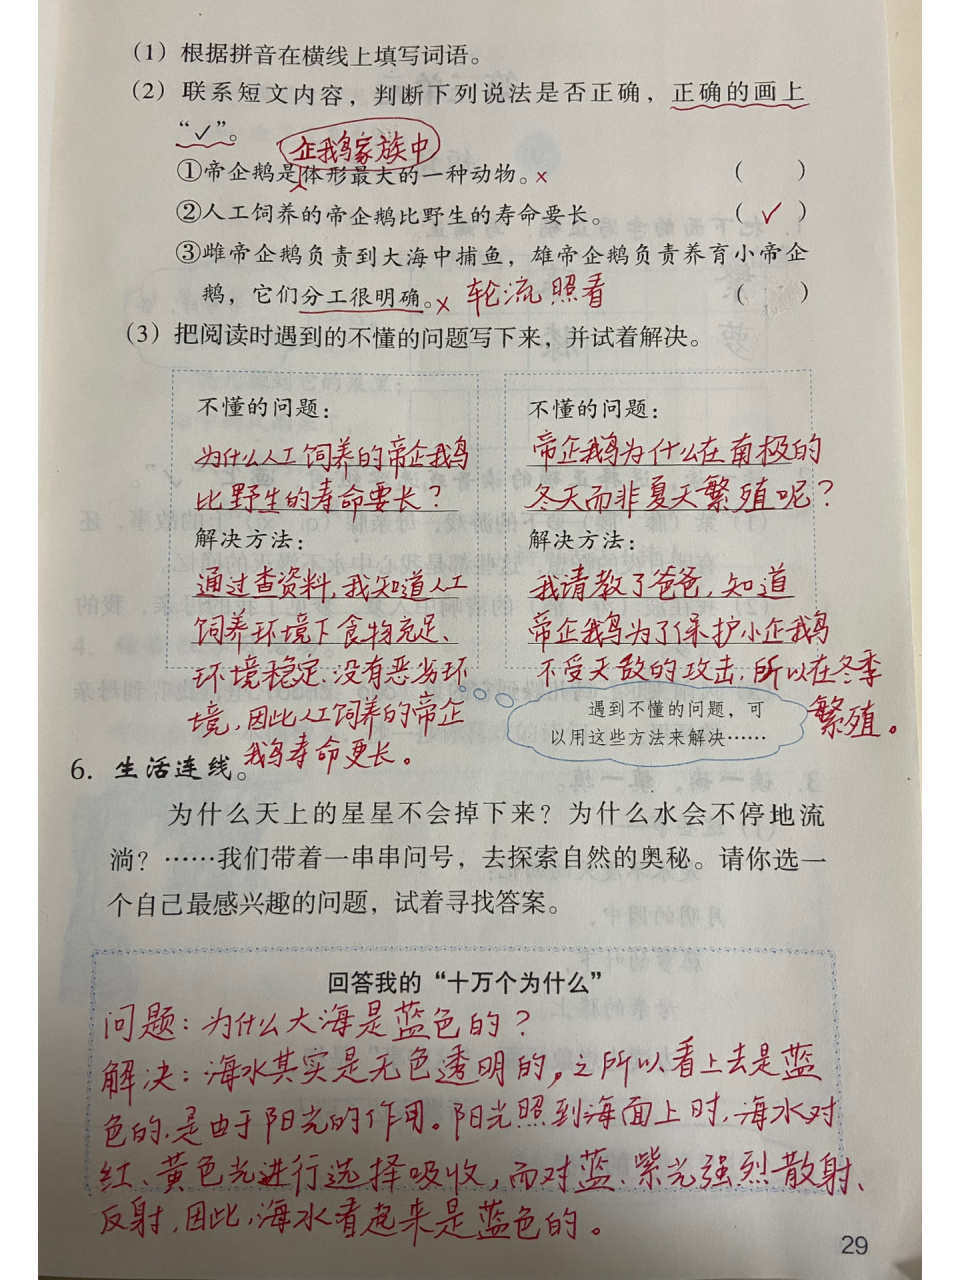 (1) 根据拼音在横线上填写词语。
(2) 联系短文内容，判断下列说法是否正确，正确的画上
“✓”。
企鹅家族中
①帝企鹅是体形最大的一种动物。x ( )
②人工饲养的帝企鹅比野生的寿命要长。 ( ✓ )
③雌帝企鹅负责到大海中捕鱼，雄帝企鹅负责养育小帝企
鹅，它们分工很明确。x 轮流照看 ( )
(3) 把阅读时遇到的不懂的问题写下来，并试着解决。
不懂的问题：
为什么人工饲养的帝企鹅
比野生的寿命要长？
解决方法：
通过查资料，我知道人工
饲养环境下食物充足、
环境稳定、没有恶劣环
境，因此人工饲养的帝企
鹅寿命更长。
不懂的问题：
帝企鹅为什么在南极的
冬天而非夏天繁殖呢？
解决方法：
我请教了爸爸，知道
帝企鹅为了保护小企鹅
不受天敌的攻击，所以在冬季
繁殖。
遇到不懂的问题，可
以用这些方法来解决……
6. 生活连线。
为什么天上的星星不会掉下来？为什么水会不停地流
淌？……我们带着一串串问号，去探索自然的奥秘。请你选一
个自己最感兴趣的问题，试着寻找答案。
回答我的“十万个为什么”
问题：为什么大海是蓝色的？
解决：海水其实是无色透明的，之所以看上去是蓝
色的，是由于阳光的作用。阳光照到海面上时，海水对
红、黄色光进行选择吸收，而对蓝、紫光强烈散射、
反射，因此，海水看起来是蓝色的。
29